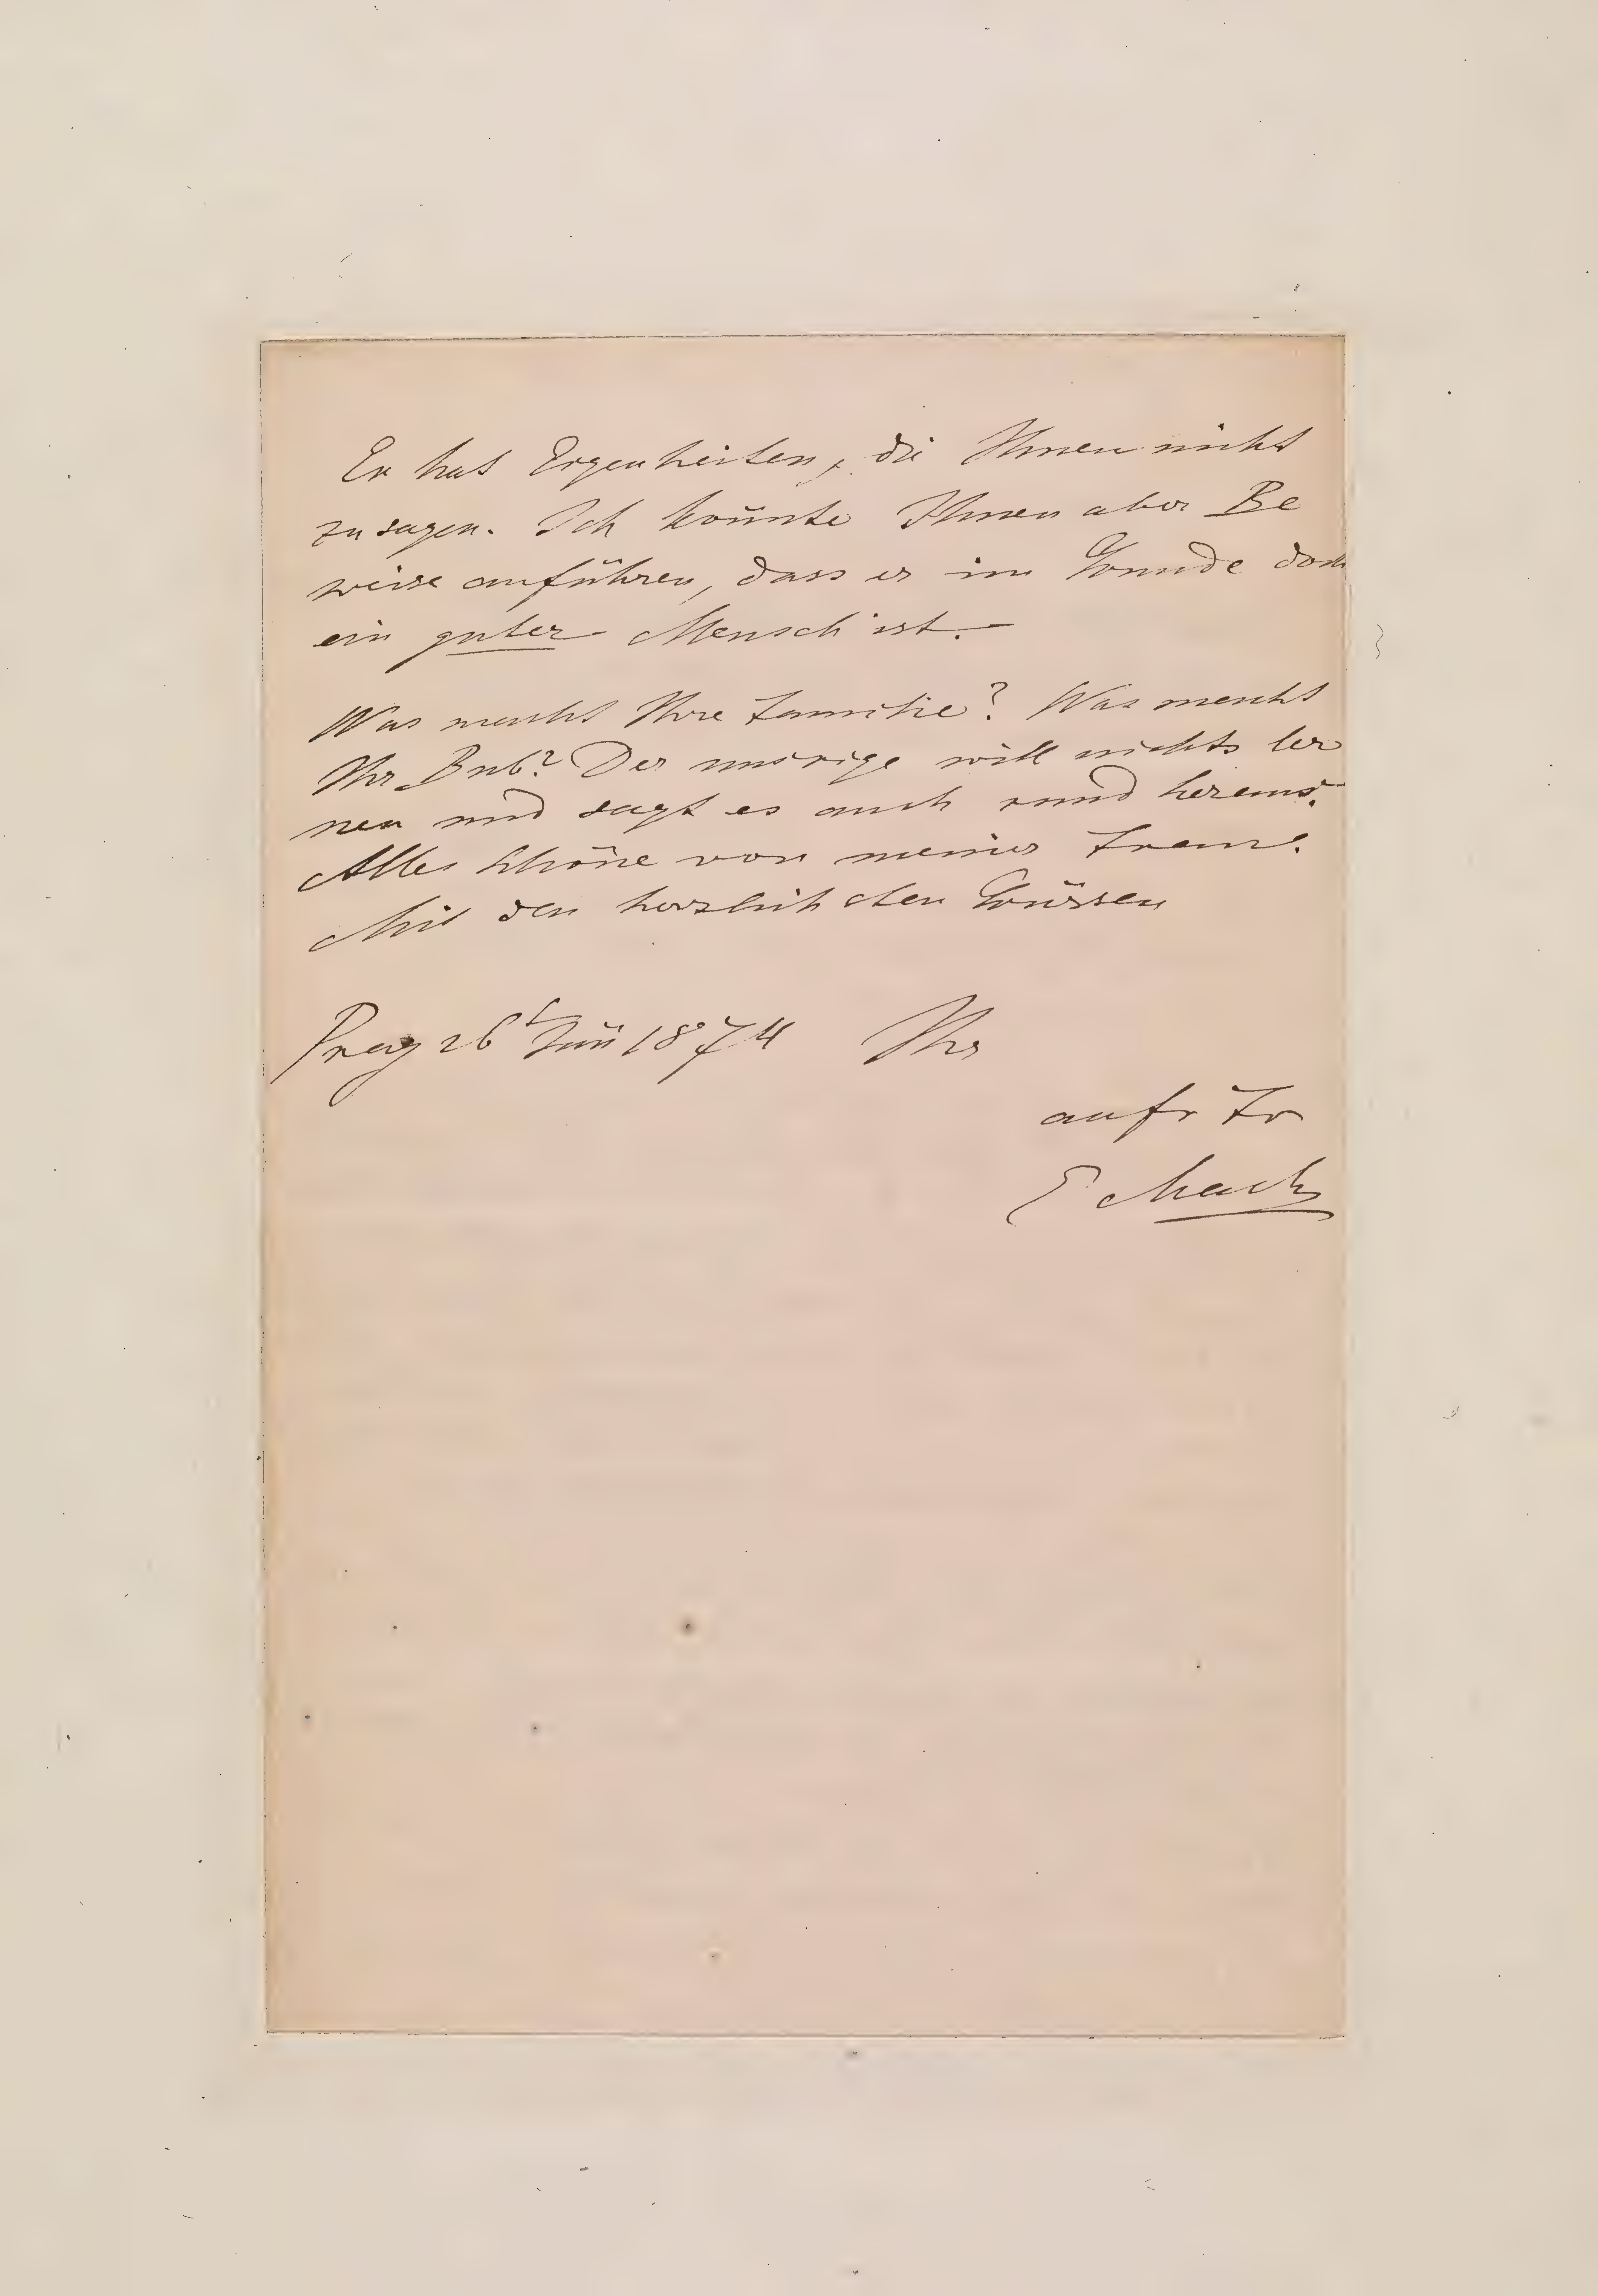 Er hat Eigenheiten, die Ihnen nicht
zusagen. Ich könnte Ihnen aber Be
weise anführen, dass er im Grunde doch
ein guter Mensch ist. —
Was macht Ihre Familie? Was macht
Ihr Bub? Der unsrige will nichts ler
nen und sagt es auch rund heraus.
Alles Schöne von meiner Frau.
Mit den herzlichsten Grüssen
Prag 26 Juni 1874 Ihr
aufr Fr
E Mach